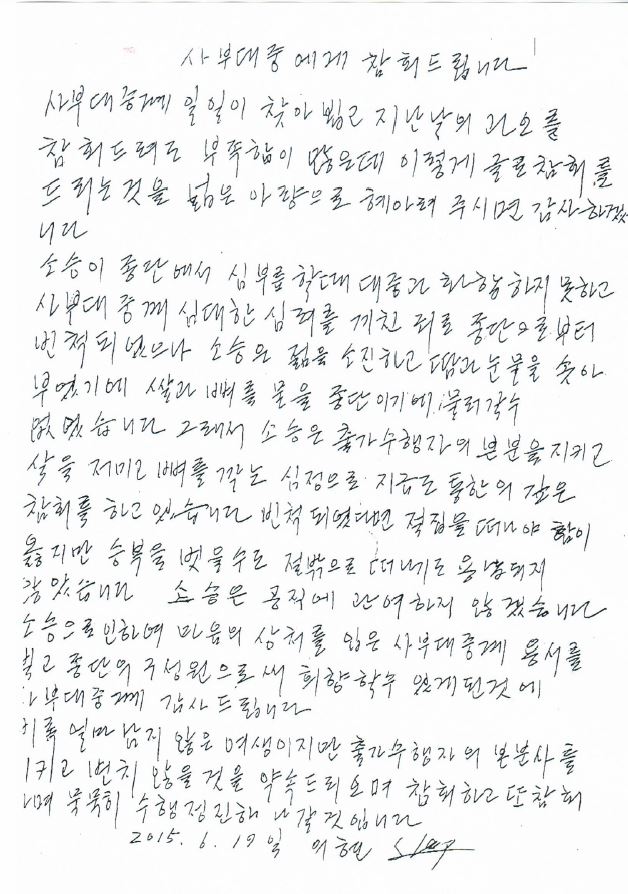 사부대중에게 참회드립니다
사부대중께 일일이 찾아 뵙고 지난날의 과오를
참회드려도 부족함이 많은데 이렇게 글로 참회를
드리는 것을 넓은 아량으로 헤아려 주시면 감사하겠
니다
소승이 종단에서 심부름 할때 대중과 화합하지 못하고
사부대중께 심대한 심려를 끼친 죄로 종단으로부터
빈척되었으나 소승은 젊음을 소진하고 땀과 눈물을 쏟아
부었기에 살과 뼈를 묻을 종단이기에 물러갈수
없었습니다 그래서 소승은 출가수행자의 본분을 지키고
살을 저미고 뼈를 깎는 심정으로 지금도 통한의 깊은
참회를 하고 있습니다 빈척되었다면 절집을 떠나야 함이
옳지만 승복을 벗을수도 절밖으로 떠나기도 용납되지
않았습니다 소승은 공직에 관여하지 않겠습니다
소승으로 인하여 마음의 상처를 입은 사부대중께 용서를
빌고 종단의 구성원으로써 회향할수 있게된것에
사부대중께 감사드립니다
얼마남지 않은 여생이지만 출가수행자의 본분사를
변치 않을 것을 약속드리오며 참회하고 또참회
하며 묵묵히 수행정진해 나갈것입니다
2015. 6. 19일 의현